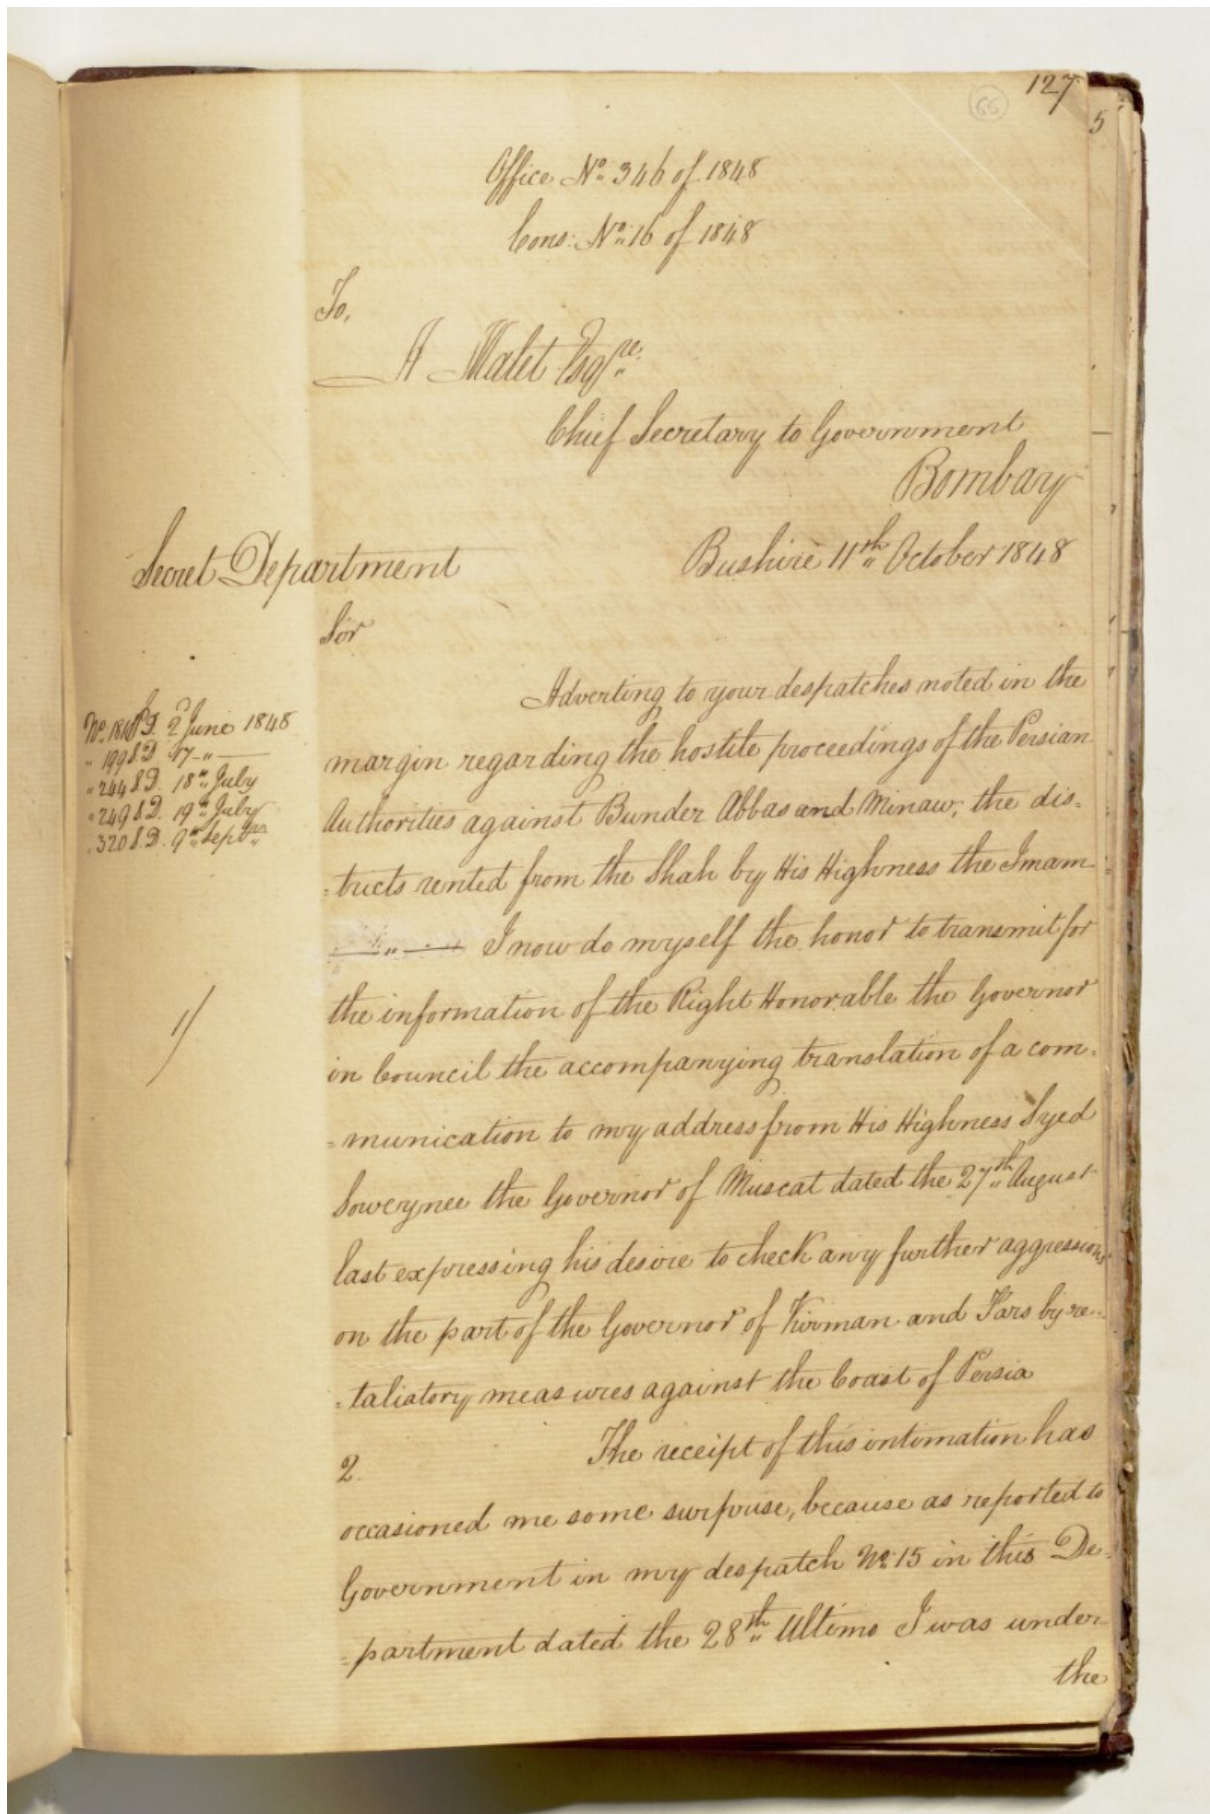 127
66
5
Office No. 346 of 1848
Cons: No. 16 of 1848
To,
A Malet Esqre.
Chief Secretary to Government
Bombay
Secret Department
Bushire 11th October 1848
Sir
Adverting to your despatches noted in the
No. 181 S.D. 2 June 1848
" 199 S.D. 17 - " -
" 244 S.D. 18th July
" 249 S.D. 19th July
" 320 S.D. 9th Sepber
margin regarding the hostile proceedings of the Persian
Authorities against Bunder Abbas and Minaw, the dis=
=tricts rented from the Shah by His Highness the Imam
I now do myself the honor to transmit for
the information of the Right Honorable the Governor
in Council the accompanying translation of a com=
=munication to my address from His Highness Syed
Soweynee the Governor of Muscat dated the 27th August
last expressing his desire to check any further aggressions
on the part of the Governor of Kirman and Fars by re=
=taliatory measures against the Coast of Persia
2. The receipt of this intimation has
occasioned me some surprise, because as reported to
Government in my despatch No. 15 in this De=
=partment dated the 28th Ultimo I was under
the